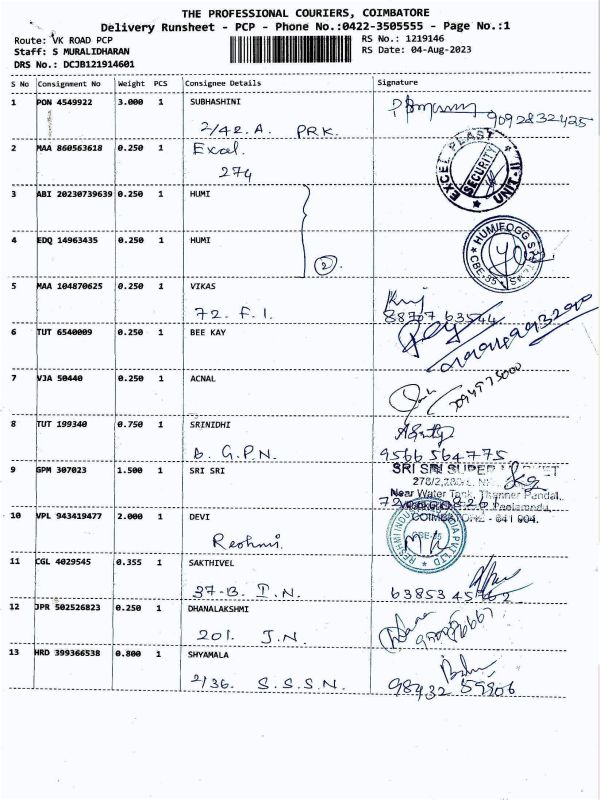 THE PROFESSIONAL COURIERS, COIMBATORE
Delivery Runsheet - PCP - Phone No.:0422-3505555 - Page No.:1
Route: VK ROAD PCP RS No.: 1219146
Staff: S MURALIDHARAN RS Date: 04-Aug-2023
DRS No.: DCJB121914601
S No Consignment No Weight PCS Consignee Details Signature
1 PON 4549922 3.000 1 SUBHASHINI
9092832425
2/42. A. PRK.
2 MAA 860563618 0.250 1 Excel.
274
EXCEL PLAST UNIT-II SECURITY
3 ABI 20230739639 0.250 1 HUMI
4 EDQ 14963435 0.250 1 HUMI
2
CBE-35
5 MAA 104870625 0.250 1 VIKAS
72. F. I. 88707 63544
6 TUT 6540009 0.250 1 BEE KAY
7 VJA 50440 0.250 1 ACNAL
8 TUT 199340 0.750 1 SRINIDHI
B. G.P.N. 9566564775
9 GPM 307023 1.500 1 SRI SRI
SRI SRI SUPER MARKET
Near Water Tank, Thanner Pandal,
COIMBATORE - 641 004.
10 VPL 943419477 2.000 1 DEVI
Reshmi.
RESHMI INDUSTRIES INDIA PVT LTD
11 CGL 4029545 0.355 1 SAKTHIVEL
37-B. T.N. 63853 45
12 JPR 502526823 0.250 1 DHANALAKSHMI
201. J.N.
13 HRD 399366538 0.800 1 SHYAMALA
2/36. S.S.S.N. 98432 59906